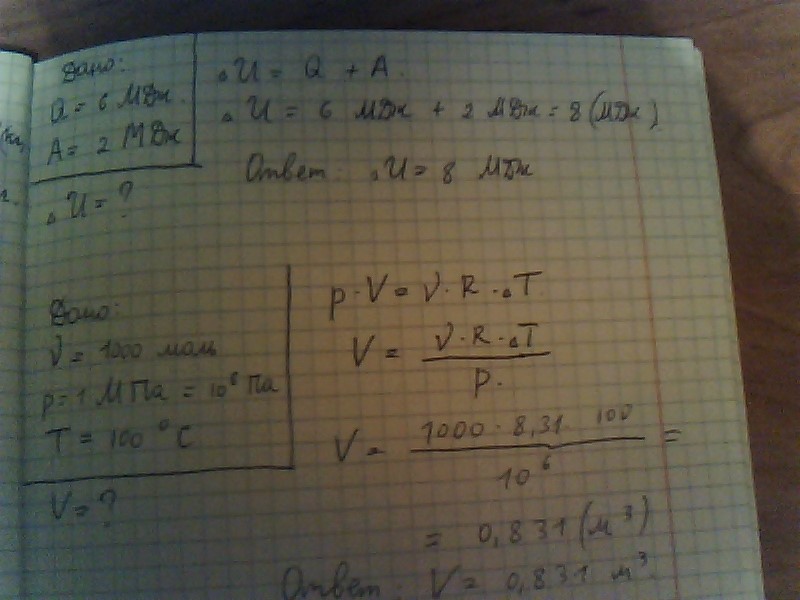 Дано:
Q = 6 МДж.
A = 2 МДж
ΔU = ?
ΔU = Q + A.
ΔU = 6 МДж + 2 МДж = 8 (МДж)
Ответ: ΔU = 8 МДж
Дано:
ν = 1000 моль
p = 1 МПа = 10⁶ Па
T = 100 °C
V = ?
p · V = ν · R · ΔT
V = ν · R · ΔT / p.
V = 1000 · 8,31 · 100 / 10⁶ =
= 0,831 (м³)
Ответ: V = 0,831 м³.